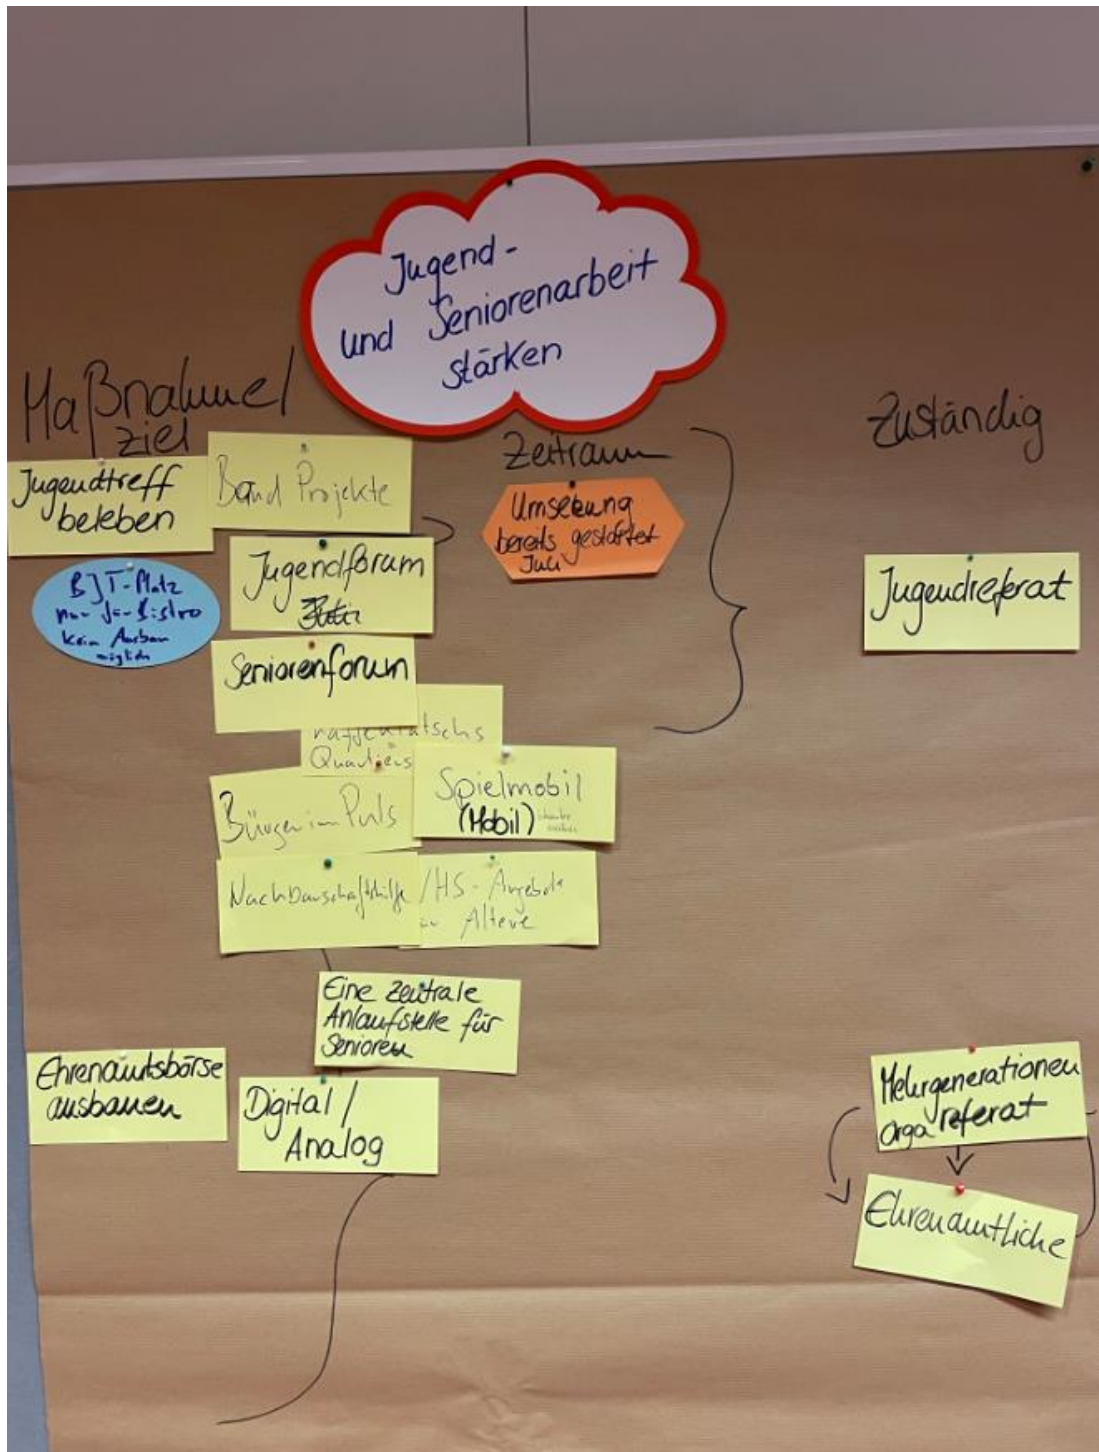 Jugend-
und Seniorenarbeit
stärken
Maßnahme/
Ziel
Zeitraum
Zuständig
Jugendtreff
beleben
Band Projekte
Umsetzung
bereits gestartet
Juli
BJT-Platz
nur für Bistro
kein Ausbau
möglich
Jugendforum
Jugendreferat
Seniorenforum
Quartiers
Spielmobil
(Mobil)
Bürger im Puls
Nachbarschaftshilfe
/HS-Angebote
Ältere
Eine zentrale
Anlaufstelle für
Senioren
Ehrenamtsbörse
ausbauen
Digital /
Analog
Mehrgenerationen
Orga referat
Ehrenamtliche